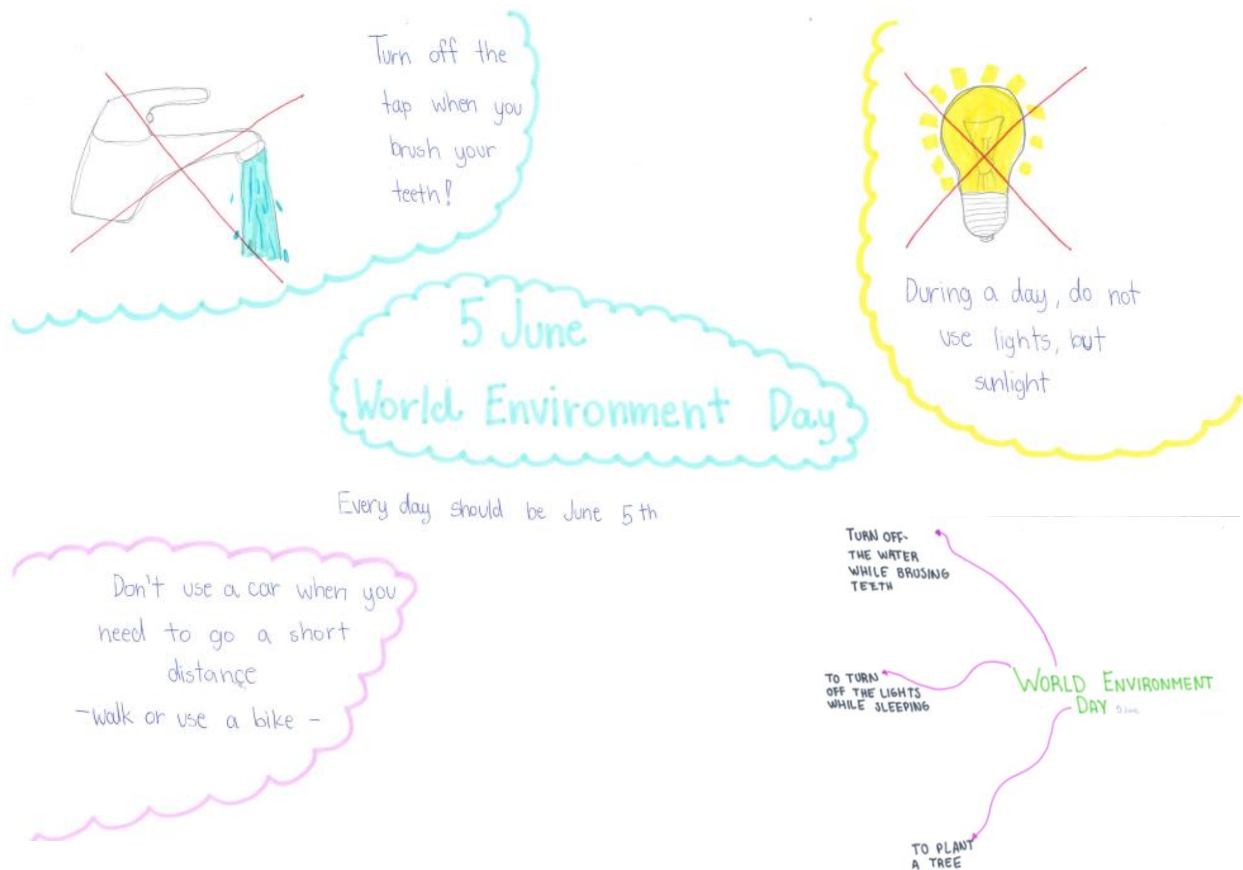 Turn off the
tap when you
brush your
teeth!
During a day, do not
use lights, but
sunlight
5 June
World Environment Day
Every day should be June 5th
Don't use a car when you
need to go a short
distance
-walk or use a bike -
TURN OFF
THE WATER
WHILE BRUSING
TEETH
TO TURN
OFF THE LIGHTS
WHILE SLEEPING
WORLD ENVIRONMENT
DAY 5 June
TO PLANT
A TREE